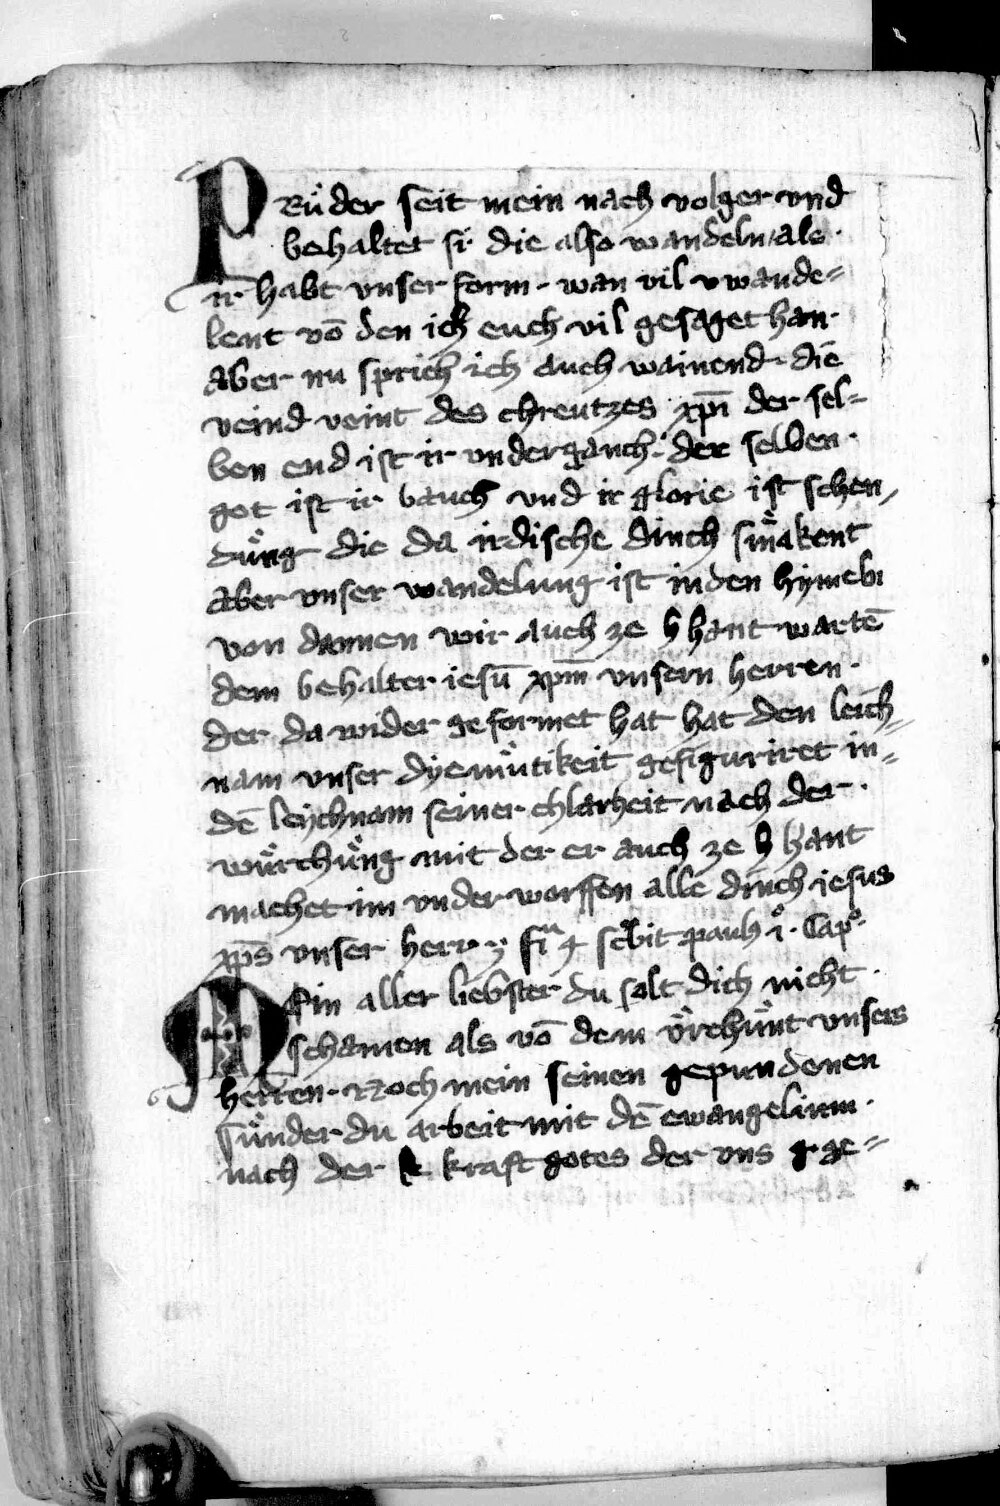 PRuͤder seit mein nach volger vnd
behaltet si die also wandeln als
ir habt vnser form · wan vil vwande-
lent vō den ich euch vil gesaget han ·
Aber nu sprich ich auch wainend · die
veind veint des chreutzes xp̄i der sel-
ben end ist ir vnderganch · der selben ·
got ist ir bauch vnd ir glorie ist schen-
duͤng die da irdische dinch smaͤkent
Aber vnser wandelung ist in den hymeln
von dannen wir auch ze hant wartē
dem behalter iesū xp̄m vnsern herren ·
der da wider geformet hat hat den leich-
nam vnser dyemuͤtikeit gefiguriret in-
dē leychnam seiner chlarheit nach der ·
wuͤrchuͤng mit der er auch ze hant
machet im vnderworffen alle dinch iesus
xp̄s vnser herr
Mein aller liebster du solt dich nicht ·
schamen als vō dem vͤrchuͤnt vnsers
herren · Noch mein seinen gepundenen
suͤnder du arbeit mit dē ewangelium ·
nach der kraft gotes der vns ge-